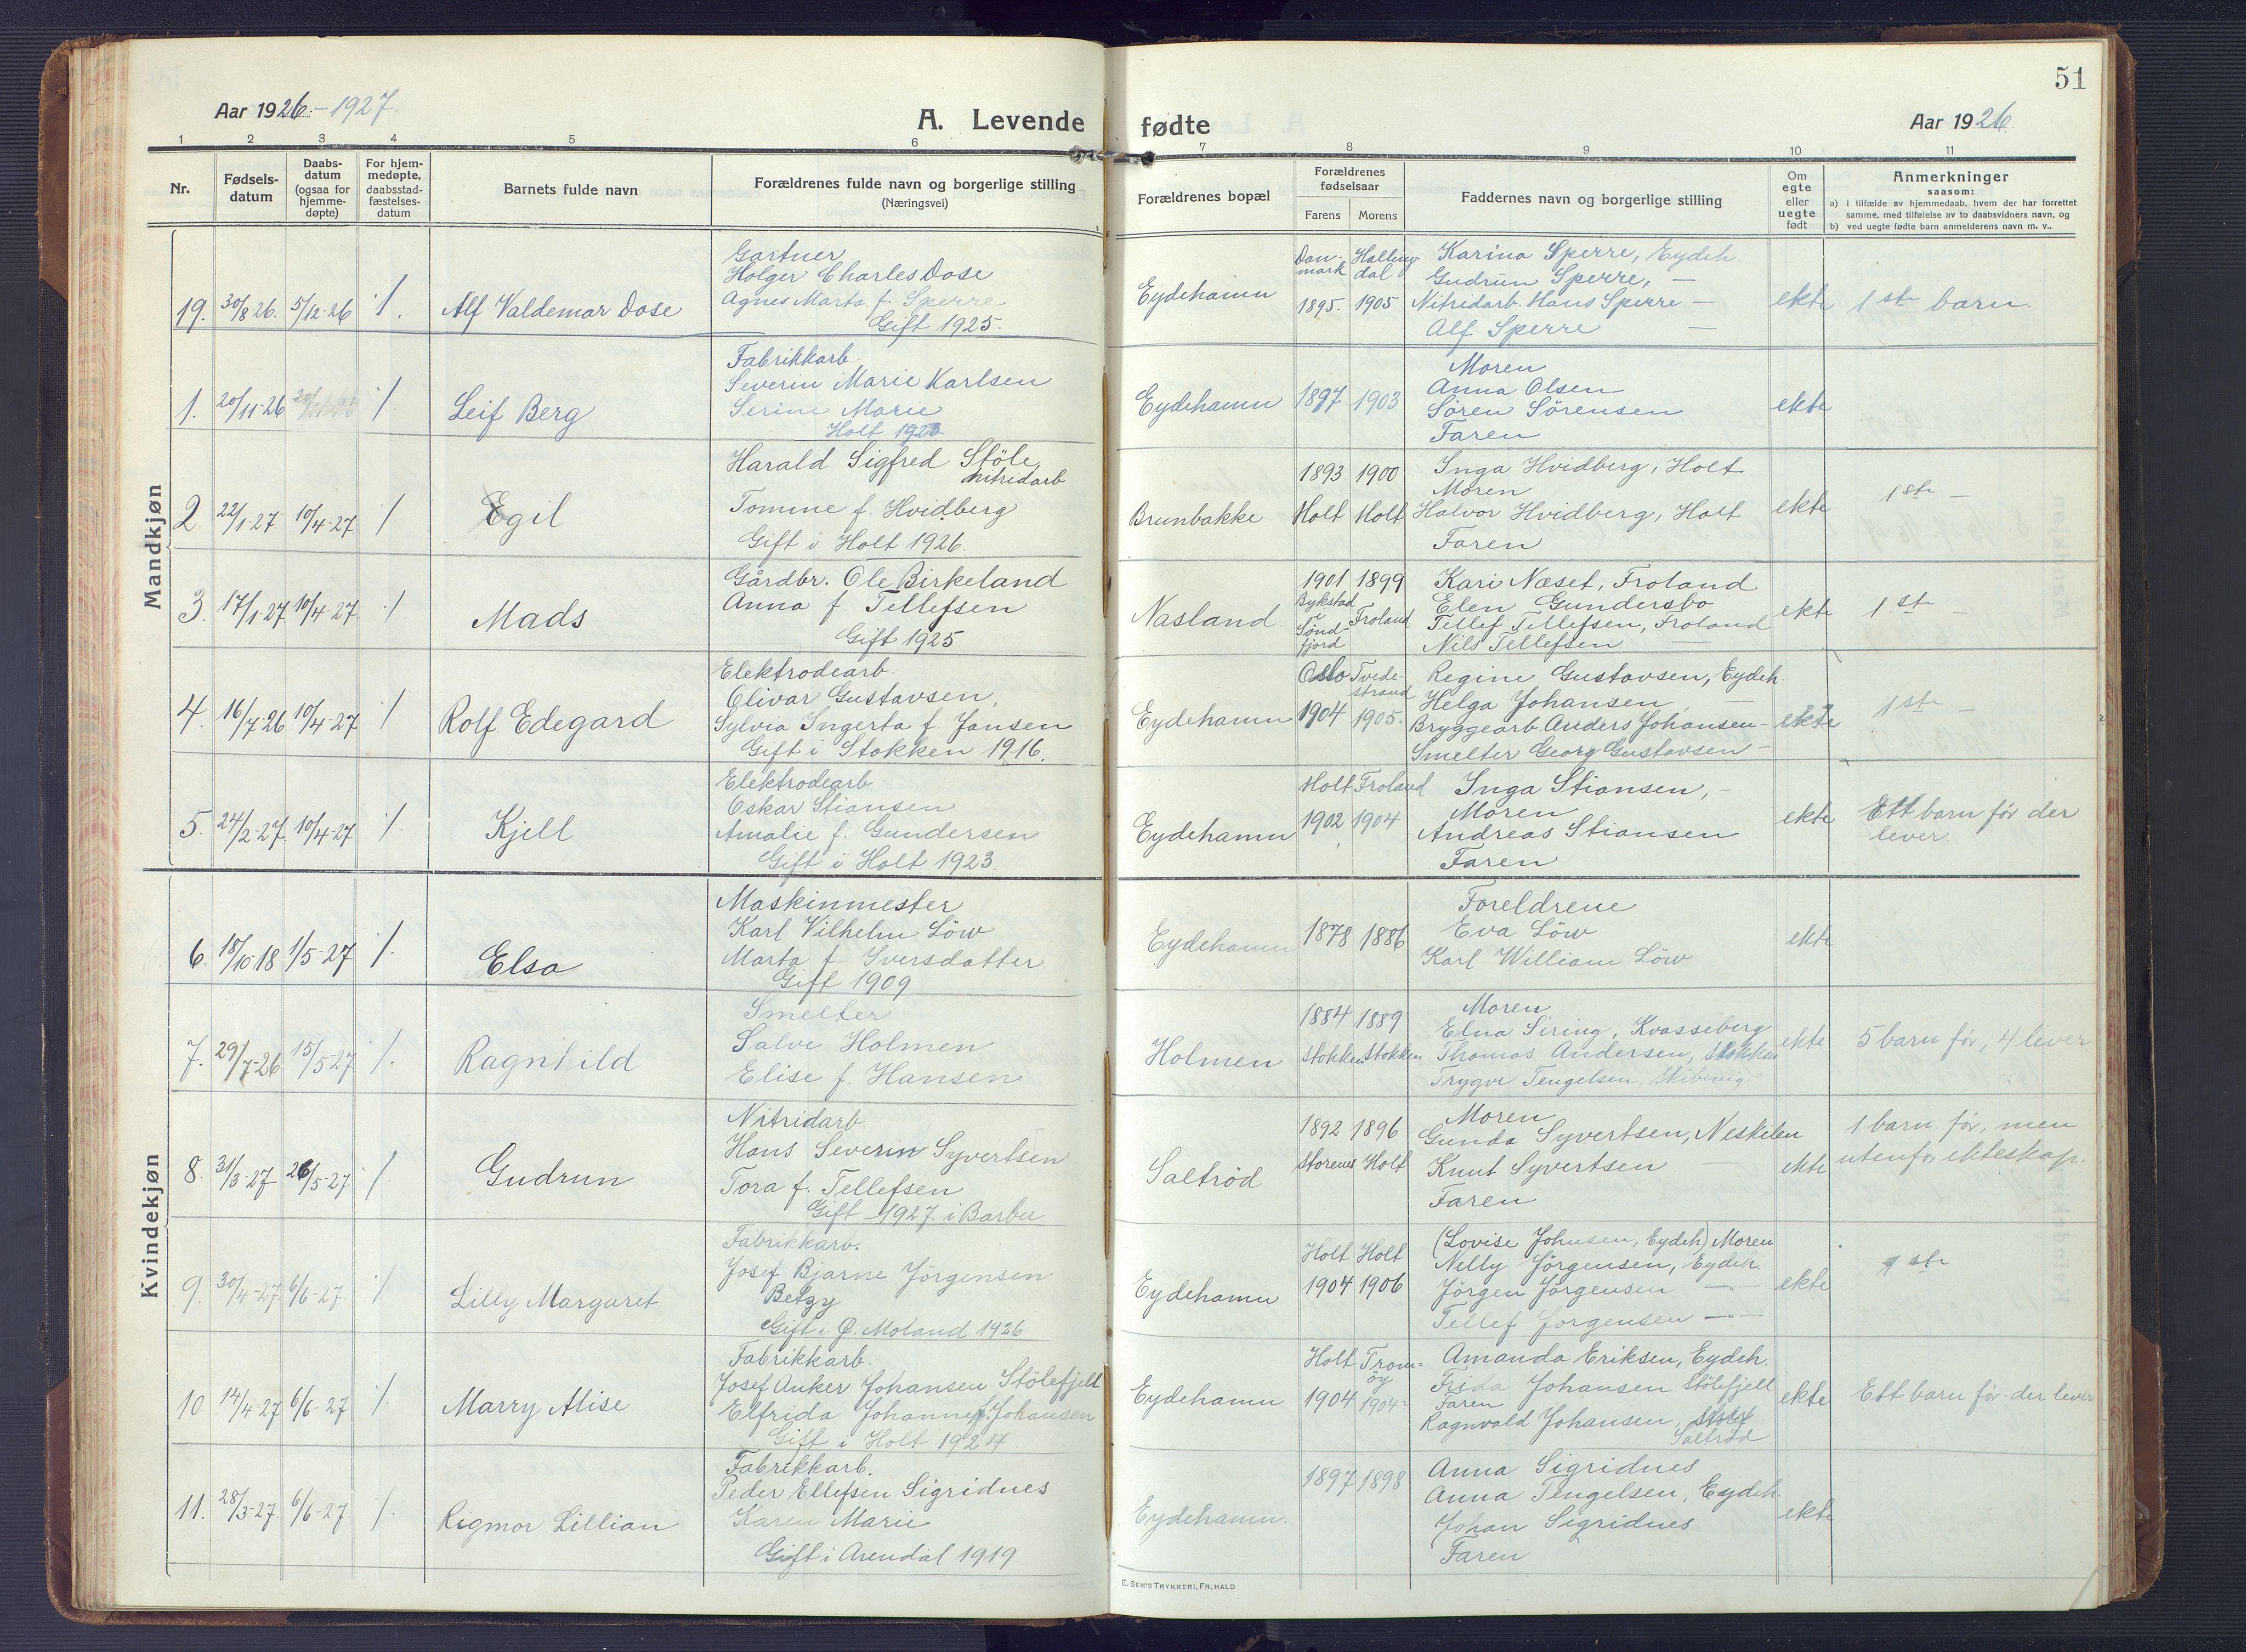 51
Aar 1926 - 1927
A. Levende
fødte
Aar 1926
1 2 3 4 5 6 7 8 9 10 11
Nr.
Fødsels-
datum
Daabs-
datum
(ogsaa for
hjemme-
døpte)
For hjem-
medøpte,
daabsstad-
fæstelses-
datum
Barnets fulde navn
Forældrenes fulde navn og borgerlige stilling
(Næringsvei)
Forældrenes bopæl
Forældrenes
fødselsaar
Farens Morens
Faddernes navn og borgerlige stilling
Om
egte
eller
uegte
født
Anmerkninger
saasom:
a) i tilfælde av hjemmedaab, hvem der har forrettet
samme, med tilføielse av to daabsvidners navn, og
b) ved uegte fødte barn anmelderens navn m. v..
Mandkjøn
19. 30/8-26. 5/12-26 ·/. Alf Valdemar Dose
Gartner
Holger Charles Dose
Agnes Marta f. Sperre
Gift 1925.
Eydehamn
Dan-
mark
1895.
Halling-
dal
1905
Karina Sperre, Eydeh
Gudrun Sperre, —
Nitridarb. Hans Sperre —
Alf Sperre —
ekte
1ste barn.
1. 20/11-26 ·/. Leif Berg
Fabrikkarb.
Severin Marie Karlsen
Serine Marie
Holt
Eydehamn
1897 1903
Moren
Anna Olsen
Søren Sørensen
Faren
ekte
2 22/1-27 10/4-27 ·/. Egil
Harald Sigfred Støle
nitridarb
Tomine f. Hvidberg
Gift i Holt 1926.
Brunbakke
1893 1900
Holt Holt
Inga Hvidberg, Holt
Moren
Halvor Hvidberg, Holt
Faren
ekte
1ste —
3. 17/1-27 10/4-27 ·/. Mads
Gårdbr. Ole Birkeland
Anna f. Tellefsen
Gift 1925
Nasland
1901 1899
Bykstad
i
Sønd-
fjord
Froland
Kari Næset, Froland
Elen Gundersbo
Tellef Tellefsen, Froland
Nils Tellefsen —
ekte
1ste —
4. 16/7-26 10/4-27 ·/. Rolf Edegard
Elektrodearb
Olivar Gustavsen,
Sylvia Ingerta f. Jansen
Gift i Stokken 1916.
Eydehamn
Oslo
1904
Tvede-
strand
1905.
Regine Gustavsen, Eydeh
Helga Johansen, —
Bryggearb Anders Johansen —
Smelter Georg Gustavsen —
ekte
1ste —
5. 24/2-27. 10/4-27 ·/. Kjell
Elektrodearb
Oskar Stiansen
Amalie f. Gundersen
Gift i Holt 1923.
Eydehamn
Holt Froland
1902 1904
Inga Stiansen, -
Moren
Andreas Stiansen
Faren
ekte
Ett barn før der
lever.
Kvindekjøn
6 18/10-18 1/5-27 ·/. Elsa
Maskinmester
Karl Vilhelm Löw
Marta f Iversdatter
Gift 1909
Eydehamn
1878 1886
Foreldrene
Eva Löw
Karl William Löw
ekte
7. 29/7-26 15/5-27 ·/. Ragnhild
Smelter
Salve Holmen
Elise f. Hansen
Holmen
1884 1889
Stokken Stokken
Moren
Elna Siring, Kvasseberg
Thomas Andersen, Stokken
Trygve Tengelsen, Skibvig
ekte
5 barn før, 4 lever
8. 31/3-27 26/5-27 ·/. Gudrun
Nitridarb
Hans Severin Syvertsen
Tora f. Tellefsen
Gift 1927. i Barbu
Saltrød
1892 1896
Storenes Holt
Moren
Gunda Syvertsen, Neskilen
Knut Syvertsen —
Faren
ekte
1 barn før, men
utenfor ekteskap.
9. 30/4-27 6/6-27 ·/. Lilly Margaret
Fabrikkarb.
Josef Bjarne Jørgensen
Betzy
Gift i Ø. Moland 1926
Eydehamn
Holt Holt
1904 1906
(Lovise Johnsen, Eydeh) Moren
Nelly Jørgensen, Eydeh.
Jørgen Jørgensen —"—
Tellef Jørgensen —"—
ekte
1ste
10 14/4-27 6/6-27 ·/. Marry Alise
Fabrikkarb.
Josef Anker Johansen Stölefjell
Elfrida Johanne f. Johansen
Gift i Holt 1924
Eydehamn
Holt
1904
Trom-
øy
1904
Amanda Eriksen, Eydeh.
Frida Johansen Stölefjell
Faren
Ragnvald Johansen,
Saltrød
ekte
Ett barn før - der lever
11. 28/3-27 6/6-27 ·/. Rigmor Lillian
Fabrikkarb.
Peder Ellefsen Sigridnes
Karen Marie
Gift i Arendal 1919
Eydehamn.
1897 1898
Anna Sigridnes
Anna Tengelsen, Eydeh.
Johan Sigridnes
Faren
ekte
E. SEM'S TRYKKERI, FR.HALD